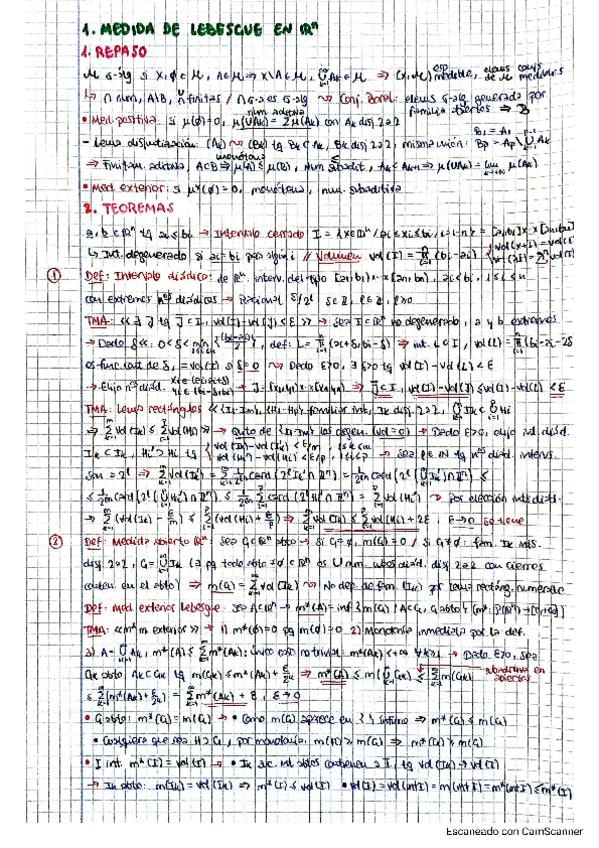 1. MEDIDA DE LEBESGUE EN ℝⁿ
1. REPASO
M σ-álg si X, ∅ ∈ M, A∈M ⇒ X\A ∈ M, ∪Ak ∈ M ⇒ (X, M) esp medible, elems
↳ ∩ num, A\B, ∪ finitas / ∩ σ-as es σ-alg ⇝ Conj. Borel: elems σ-alg generado por
• Med. positiva: si μ(∅)=0, μ(∪Ak) = Σμ(Ak) con Ak disj. 2a2
- Lema disjuntización: (Ak) ⇝ (Bk) tq Bk⊂Ak, Bk disj 2a2, misma unión: B1=A1, Bp = Ap \ ∪Ak
⇒ Finitam. aditiva, A⊂B ⇒ μ(A) ≤ μ(B), num subadit, Ak⊂Ak+1 ⇒ μ(∪Ak) = lim μ(Ak)
• Med. exterior: si μ*(∅)=0, monótona, num. subaditiva
2. TEOREMAS
a, b ∈ ℝⁿ tq ai≤bi → Intervalo cerrado I = {x∈ℝⁿ / ai≤xi≤bi, i=1..n} = [a1,b1]x..x[an,bn]
↳ Int. degenerado si ai=bi para algún i // Volumen vol(I) = Π(bi-ai)
① Def: Intervalo diádico: de ℝⁿ: interv. del tipo [a1,b1)x..x[an,bn), ai<bi, 1≤i≤n
con extremos nºs diádicos → Racional s/2^l s∈ℤ, l∈ℤ, l≥0
TMA: << ∃ J tq J̄⊂I, vol(I)-vol(J)<ε >> → Sea I⊂ℝⁿ no degenerado, a y b extremos
→ Dado δ: 0≤δ<min {(bi-ai)/2}, def: L = Π[ai+δ, bi-δ] ⇒ int. L⊂I, vol(L) = Π(bi-ai-2δ)
es func. cont de δ, =vol(I) si δ=0 ⇝ Dado ε>0, ∃ δ>0 tq vol(I)-vol(L)<ε
→ Elijo nºs diád. xi∈(ai,ai+δ) yi∈(bi-δ,bi) → J=[x1,y1)x..x[xn,yn) ⇒ J̄⊂I, vol(I)-vol(J)≤vol(I)-vol(L)<ε
TMA: Lema rectángulos << {I1..Im}, {H1..Hp} familias int, Ik disj 2a2, ∪Ik⊂∪Hi
⇒ Σvol(Ik)≤Σvol(Hi) >> → Quito de {I1..Im} las degen. (vol=0) → Dado ε>0, elijo int. diád.
Ik'⊂Ik, Hi'⊃Hi tq vol(Ik)-vol(Ik')<ε/m, 1≤k≤m vol(Hi')-vol(Hi)<ε/p, 1≤i≤p → Sea l∈ℕ tq nºs diád. intervs.
② Def: Medida abierto ℝⁿ: Sea G⊂ℝⁿ abto → Si G=∅, m(G)=0 / Si G≠∅: fam. Ik ints.
disj. 2a2, G=∪Ik (∃ pq todo abto ≠∅ de ℝⁿ es ∪ num. cubos diád. disj 2a2 con cierres
conten. en el abto) ⇒ m(G)=Σvol(Ik) ⇝ No dep. de fam. (Ik) por lema rectáng. numerable
Def: Med exterior Lebesgue: Sea A⊂ℝⁿ → m*(A) = inf {m(G) / A⊂G, G abto}
TMA: << m* m exterior >> → 1) m*(∅)=0 pq m(∅)=0 2) Monotonía inmediata por la def.
3) A=∪Ak, m*(A)≤Σm*(Ak): único caso no trivial: m*(Ak)<+∞ ∀k≥1 → Dado ε>0, sea
Gk abto, Ak⊂Gk tq m(Gk)≤m*(Ak)+ε/2^k ⇒ m*(A)≤m(∪Gk)≤Σm(Gk) subaditiva en abiertos
≤Σ[m*(Ak)+ε/2^k] = Σm*(Ak)+ε, ε→0
• G abto: m*(G)=m(G) → • Como m(G) aparece en { } ínfimo ⇒ m*(G)≤m(G)
• Cualquiera que sea H⊃G, por monotonía: m(H)≥m(G) ⇒ m*(G)≥m(G)
• I int. m*(I)=vol(I) → • Ik suc. int. abtos contienen a I, tq vol(Ik)→vol(I)
→ Ik abto: m(Ik)=vol(Ik) ⇒ m*(I)≤vol(I) • vol(I)=vol(int I)=m(int I)=m*(int I)≤m*(I)
Escaneado con CamScanner